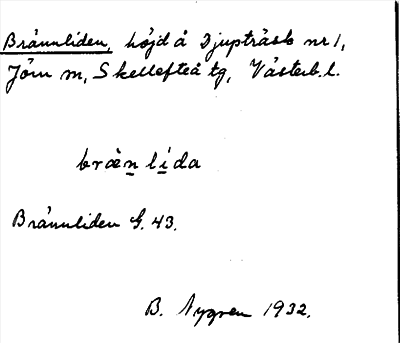 Brännliden, höjd å Djupträsk nr 1,
Jörn sn, Skellefteå tg, Västerb. l.
bræn lida
Brännliden G. 43.
B. Nygren 1932.